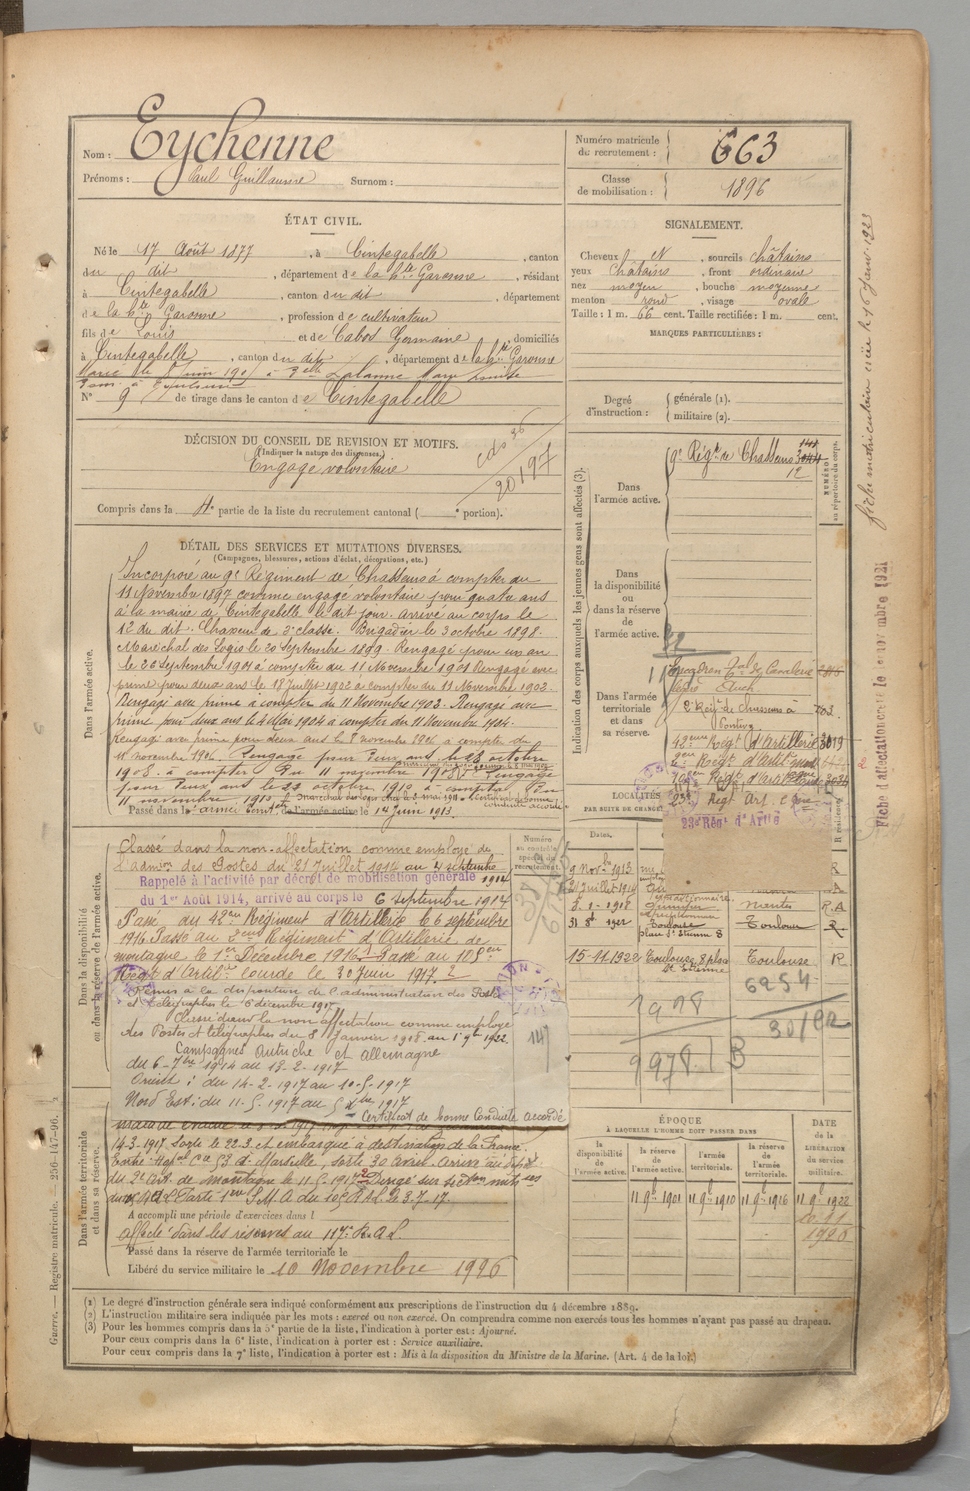 Nom : Eychenne
Prénoms : Paul Guillaume Surnom :
Numéro matricule du recrutement : 663
Classe de mobilisation : 1896
ÉTAT CIVIL.
Né le 17 Août 1877, à Cintegabelle, canton
du dit, département de la Hte Garonne, résidant
à Cintegabelle, canton du dit, département
de la hte Garonne, profession de cultivateur
fils de Louis et de Cabos Germaine, domiciliés
à Cintegabelle, canton du dit, département de la hte Garonne
N° 9 de tirage dans le canton de Cintegabelle
SIGNALEMENT.
Cheveux et, sourcils châtains
yeux châtains, front ordinaire
nez moyen, bouche moyenne
menton rond, visage ovale
Taille : 1 m. 66 cent. Taille rectifiée : 1 m. cent.
MARQUES PARTICULIÈRES :
Degré d'instruction : générale (1).
militaire (2).
DÉCISION DU CONSEIL DE REVISION ET MOTIFS.
(Indiquer la nature des dispenses.)
Engagé volontaire
Compris dans la 4e partie de la liste du recrutement cantonal ( e portion).
DÉTAIL DES SERVICES ET MUTATIONS DIVERSES.
(Campagnes, blessures, actions d'éclat, décorations, etc.)
Dans l'armée active.
Incorporé au 9e Régiment de Chasseurs à compter du
11 Novembre 1897 comme engagé volontaire pour quatre ans
à la mairie de Cintegabelle le dit jour. Arrivé au corps le
12 du dit. Chasseur de 2e classe. Brigadier le 3 octobre 1898.
Maréchal des Logis le 20 Septembre 1899. Rengagé pour un an
le 26 Septembre 1901 à compter du 11 Novembre 1901 Rengagé avec
prime pour deux ans le 18 Juillet 1902 à compter du 11 Novembre 1902.
Rengagé avec prime à compter du 11 Novembre 1903. Rengagé avec
prime pour deux ans le 4 Mai 1904 à compter du 11 Novembre 1904.
Rengagé avec prime pour deux ans le 8 novembre 1906 à compter du
11 novembre 1906. Rengagé pour deux ans le 23 octobre
1908 à compter du 11 novembre 1908. Rengagé
pour deux ans le 23 octobre 1910 à compter du
11 novembre 1910.
Passé dans l'armée territle de l'armée active le 14 Juin 1913.
Dans la disponibilité ou dans la réserve de l'armée active.
Classé dans la non-affectation comme employé de
l'admion des Postes du 21 Juillet 1914 au 4 septembre 1914
Rappelé à l'activité par décret de mobilisation générale
du 1er Août 1914, arrivé au corps le 6 septembre 1914
Passé au 42eme Régiment d'Artillerie le 6 septembre
1916. Passé au 2eme Régiment d'Artillerie de
montagne le 1er Décembre 1916. Passé au 108eme
Régt d'Artilie lourde le 30 Juin 1917.
Remis à la disposition de l'administration des Postes
et télégraphes le 6 décembre 1917
Classé dans la non affectation comme employé
des Postes et télégraphes du 8 Janvier 1918 au 1er 9bre 1922.
Campagnes Autriche et Allemagne
du 6-7bre 1914 au 13-2-1917
Orient : du 14-2-1917 au 10-5-1917
Nord Est : du 11-5-1917 au 5 Xbre 1917
Certificat de bonne Conduite accordé
Dans l'armée territoriale et dans sa réserve.
14-3-1917. Sorti le 22-3 et embarqué à destination de la France.
A accompli une période d'exercices dans l
affecté dans les réserves au 117e R.A.L.
Passé dans la réserve de l'armée territoriale le
Libéré du service militaire le 10 Novembre 1926
Indication des corps auxquels les jeunes gens sont affectés (3).
NUMÉRO au répertoire du corps.
Dans l'armée active.
9e Régt de Chasseurs
12
Dans la disponibilité ou dans la réserve de l'armée active.
Dans l'armée territoriale et dans sa réserve.
Escadron Tal de Cavalerie
légère Auch
2e Régt de chasseurs à
Pontivy
203.
42eme Régt d'Artillerie 3019
23e Régt Art. Cgne
23e Régt d'Artie
LOCALITÉS
Dates.
9 Novbre 1913
21 Juillet 1914
8-1-1918 Nantes R.A
31 8t 1921 Toulouse Toulouse R.
place St Etienne 8
15-11-1922 Toulouse 8 place Toulouse R
St Etienne
6254
1978
9978
Numéro au contrôle spécial du recrutement.
ÉPOQUE
À LAQUELLE L'HOMME DOIT PASSER DANS
la disponibilité de l'armée active.
la réserve de l'armée active.
l'armée territoriale.
la réserve de l'armée territoriale.
DATE de la LIBÉRATION du service militaire.
11 9b 1901
11 9b 1910
11 9b 1916
11 9b 1922
10.11
1926
Fiche matriculaire créée le 15 Janv. 1923
Fiche d'affectation
Guerre. — Registre matricule. — 256-147-96.
(1) Le degré d'instruction générale sera indiqué conformément aux prescriptions de l'instruction du 4 décembre 1889.
(2) L'instruction militaire sera indiquée par les mots : exercé ou non exercé. On comprendra comme non exercés tous les hommes n'ayant pas passé au drapeau.
(3) Pour les hommes compris dans la 5e partie de la liste, l'indication à porter est : Ajourné.
Pour ceux compris dans la 6e liste, l'indication à porter est : Service auxiliaire.
Pour ceux compris dans la 7e liste, l'indication à porter est : Mis à la disposition du Ministre de la Marine. (Art. 4 de la loi.)